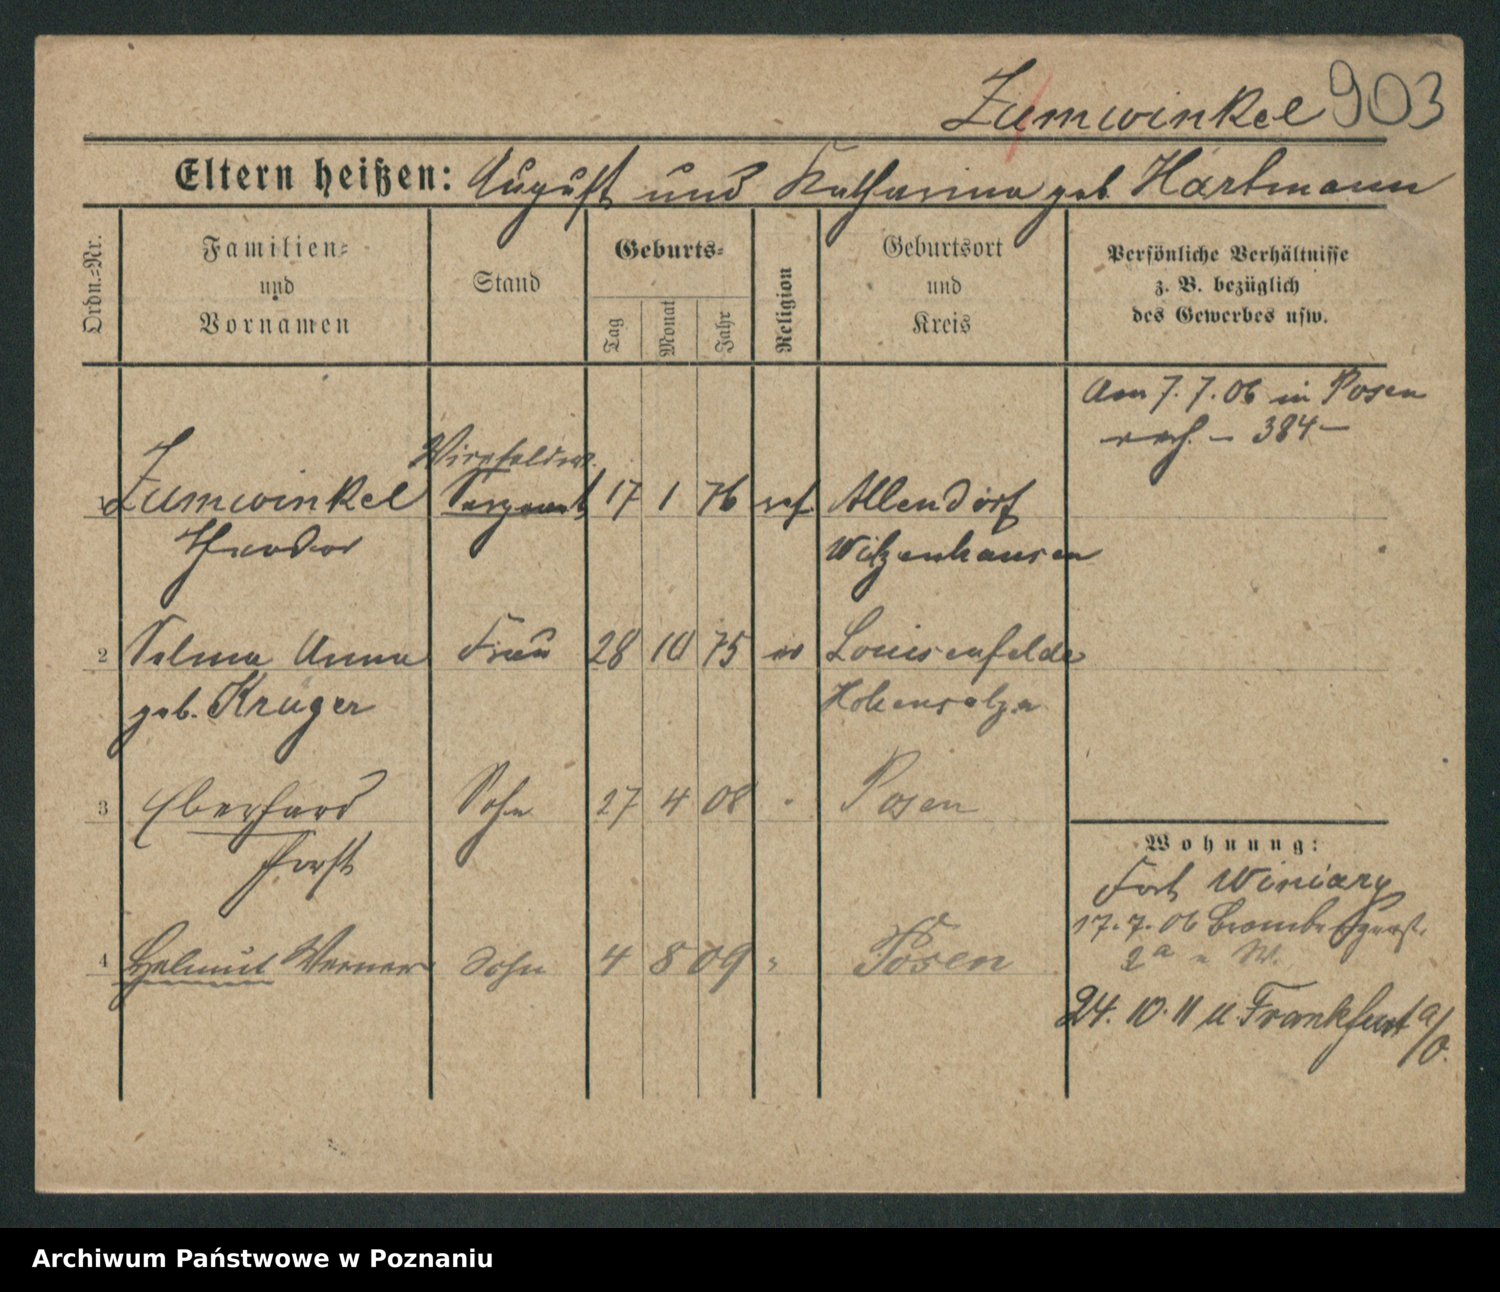 Zumwinkel 903
Eltern heißen: August und Katharina geb. Hartmann
Ordn.-Nr.
Familien-
und
Vornamen
Stand
Geburts-
Tag
Monat
Jahr
Religion
Geburtsort
und
Kreis
Persönliche Verhältnisse
z. B. bezüglich
des Gewerbes usw.
Am 7. 7. 06 in Posen
- 384 -
1 Zumwinkel Sergeant 17 1 76 ref. Allendorf
Theodor Witzenhausen
2 Selma Anna Frau 28 10 75 ev Louisenfelde
geb. Krüger Hohensalza
3 Eberhard Sohn 27 4 08 " Posen
Horst
Wohnung:
Fort Winiary
17. 7. 06
2a
4 Helmut Werner Sohn 4 8 09 " Posen
24. 10. 11 n Frankfurt a/O.
Archiwum Państwowe w Poznaniu